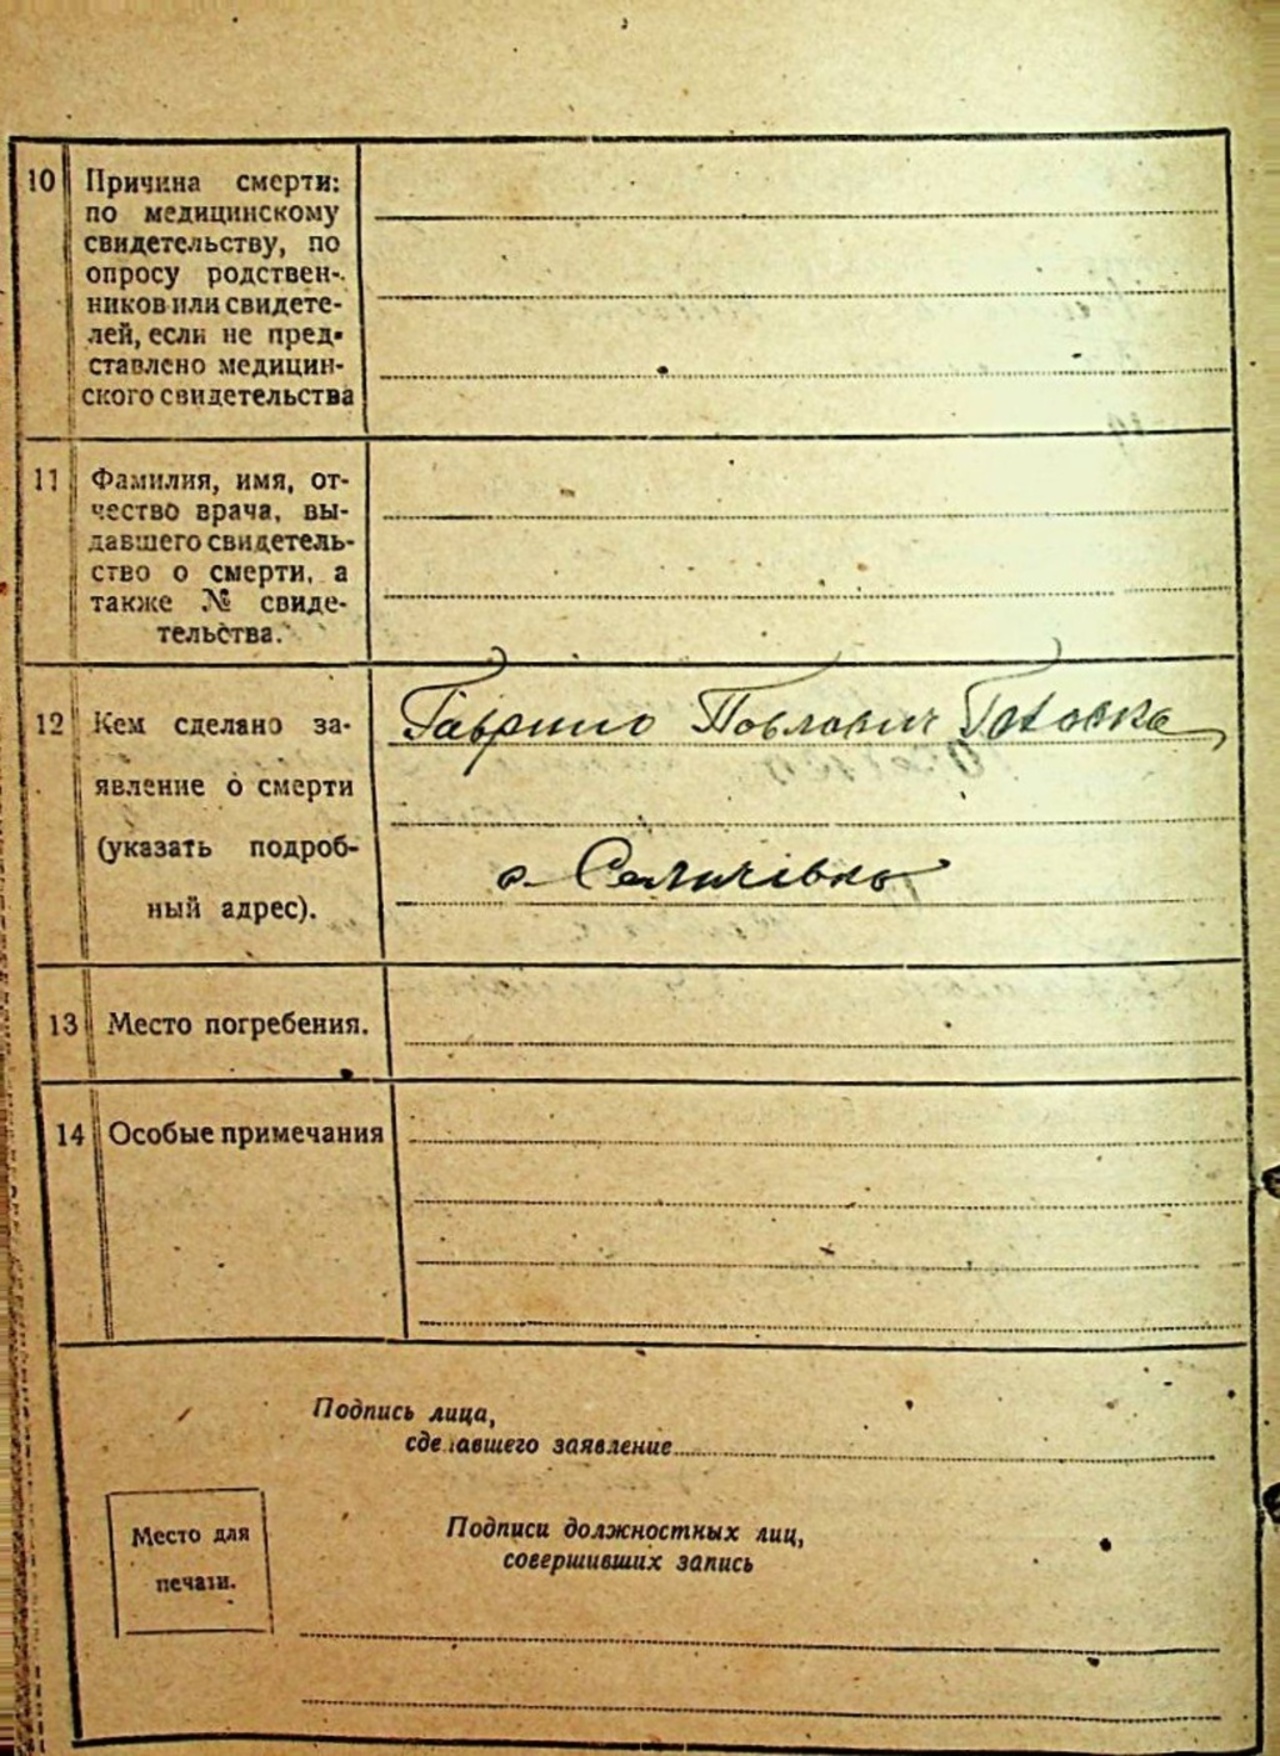 10 Причина смерти:
по медицинскому
свидетельству, по
опросу родствен-
ников или свидете-
лей, если не пред-
ставлено медицин-
ского свидетельства
11 Фамилия, имя, от-
чество врача, вы-
давшего свидетель-
ство о смерти, а
также № свиде-
тельства.
12 Кем сделано за-
явление о смерти
(указать подроб-
ный адрес).
Гаврило Павлович
с. Селичівка
13 Место погребения.
14 Особые примечания
Подпись лица,
сделавшего заявление
Место для
печати.
Подписи должностных лиц,
совершивших запись